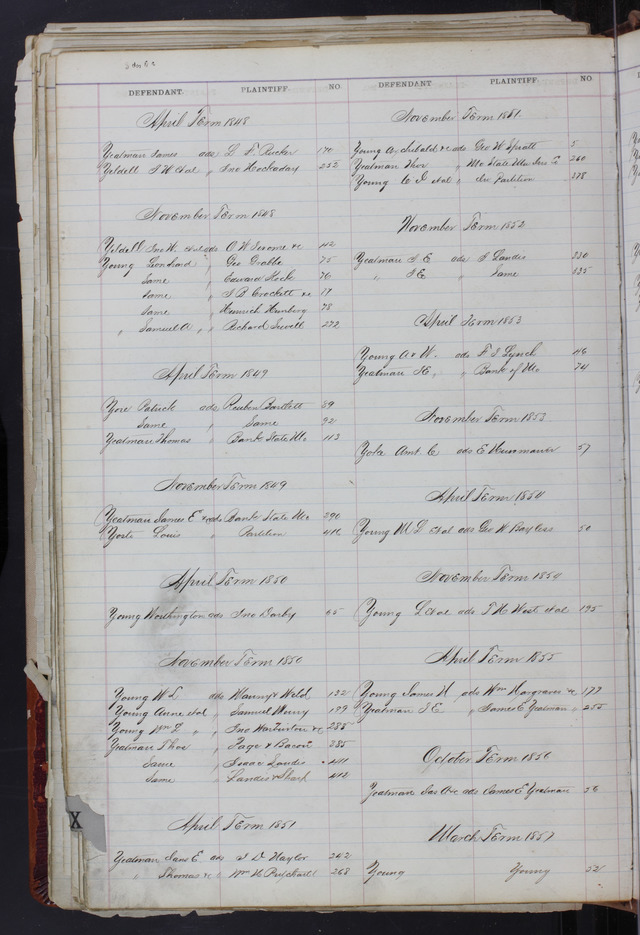 DEFENDANT. PLAINTIFF. NO
April Term 1848
Yeatman James ads L F Rucker 170
Yeldell J W etal " Jno Hockaday 252
November Term 1848
Yeldell Jno W. etal ads O W Jerome &c 42
Young Leonhard " Geo Grable 75
Same " Edward Hock 76
Same " J B Crockett &c 77
Same " Heinrich 78
" Samuel A " Richard Sewell 272
April Term 1849
Yore Patrick ads Reuben Bartlett 89
Same " Same 92
Yeatman Thomas " Bank State Mo 113
November Term 1849
Yeatman James E &c ads Bank State Mo 290
Yosti Louis " Partition 416
April Term 1850
Young Worthington ads Jno Darby 65
November Term 1850
Young W L ads Wanny & Weld 132
Young Anne etal " Samuel 199
Young Wm L " " Jno Warburton &c 285
Yeatman Thos " Page & Bacon 385
Same " Isaac Landis 411
Same " Landis & Sharp 412
April Term 1851
Yeatman Jas E. ads J D Taylor 242
" Thomas &c " Wm H Pritchartt 268
DEFENDANT PLAINTIFF. NO
November Term 1851.
Young Archibald &c ads Geo W Spratt 5
Yeatman Thos " Mo State Mu Ins Co 260
Young C J etal " In Partition 278
November Term 1852
Yeatman J E ads J Landis 330
" J E " Same 335
April Term 1853
Young A & W. ads F J Lynch 46
Yeatman J E, " Bank of Mo 74
November Term 1853
Yola Ant. C ads E 57
April Term 1854
Young M D etal ads Geo W Bayless 50
November Term 1854
Young L etal ads T H West etal 195
April Term 1855
Young James H ads Wm Hargraves &c 177
Yeatman J E " James E Yeatman " 255
October Term 1856
Yeatman Jas A &c ads James E Yeatman 56
March Term 1857
Young Young 52
X